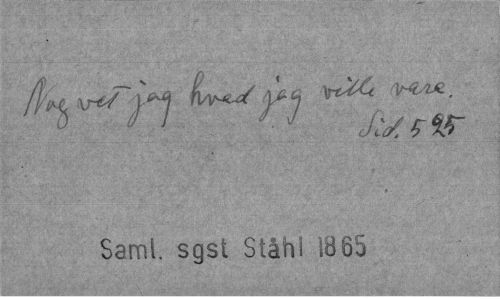 Nog vet jag hvad jag ville vara.
Sid. 525
Saml. sgst Ståhl 1865